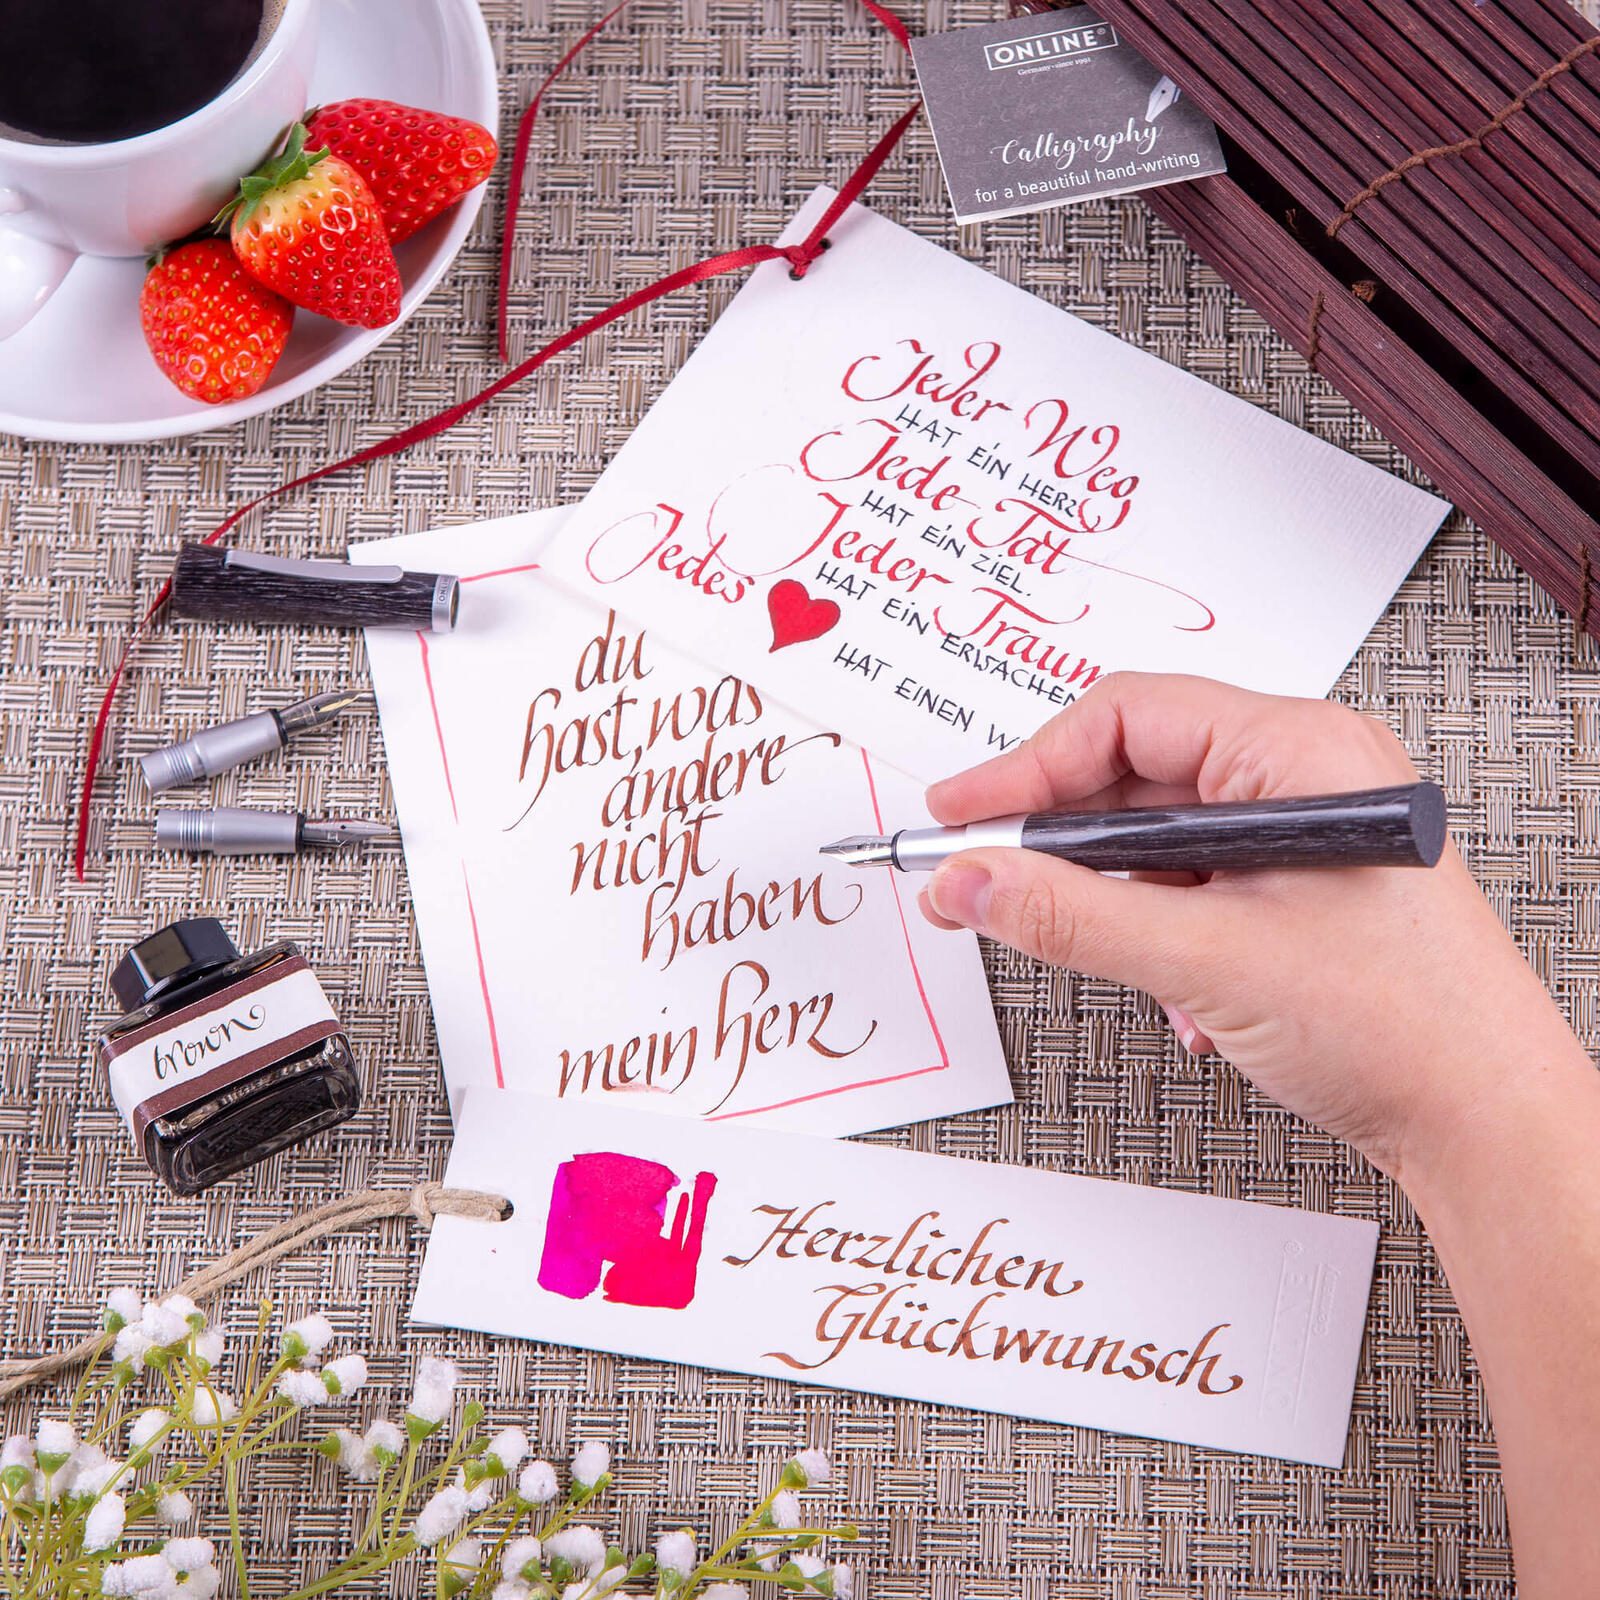 ONLINE®
Germany · since 1991
Calligraphy
for a beautiful hand-writing
Jeder Weg
HAT EIN HERZ
Jede Tat
HAT EIN ZIEL.
Jeder Traum
HAT EIN ERWACHEN
Jedes
HAT EINEN
ONLINE
du
hast, was
andere
nicht
haben
mein herz
brown
Herzlichen
Glückwunsch
ONLINE®